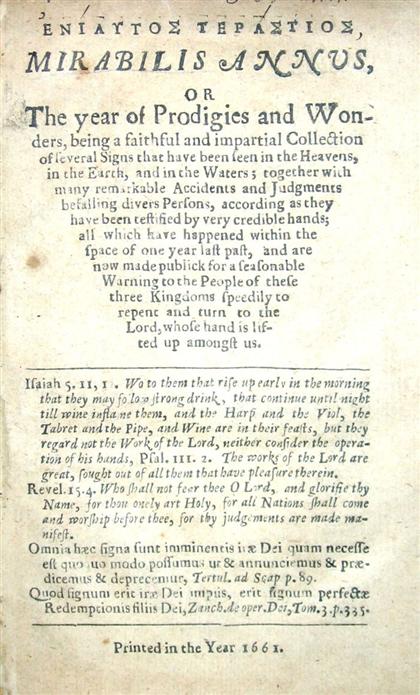 ΕΝΙΑΥΤΟΣ ΤΕΡΑΣΤΙΟΣ,
MIRABILIS ANNUS,
OR
The year of Prodigies and Won-
ders, being a faithful and impartial Collection
of ſeveral Signs that have been ſeen in the Heavens,
in the Earth, and in the Waters; together with
many remarkable Accidents and Judgments
befalling divers Perſons, according as they
have been teſtified by very credible hands;
all which have happened within the
ſpace of one year laſt paſt, and are
now made publick for a ſeaſonable
Warning to the People of theſe
three Kingdoms ſpeedily to
repent and turn to the
Lord, whoſe hand is lif-
ted up amongſt us.
Iſaiah 5. 11, 1 . Wo to them that riſe up early in the morning
that they may follow ſtrong drink, that continue until night
till wine inflame them, and the Harp and the Viol, the
Tabret and the Pipe, and Wine are in their feaſts, but they
regard not the Work of the Lord, neither conſider the opera-
tion of his hands, Pſal. 111. 2. The works of the Lord are
great, ſought out of all them that have pleaſure therein.
Revel. 15. 4. Who ſhall not feer thee O Lord, and glorifie thy
Name, for thou onely art Holy, for all Nations ſhall come
and worſhip before thee, for thy judgements are made ma-
nifeſt.
Omnia hæc ſigna ſunt imminentis iræ Dei quam neceſſe
eſt quo uo modo poſſumus ut & annunciemus & præ-
dicemus & deprecemur, Tertul. ad Scap p. 89.
Quod ſignum erit iræ Dei impiis, erit ſignum perfectæ
Redemptionis filiis Dei, Zanch. de oper. Dei, Tom. 3. p. 335.
Printed in the Year 1661.